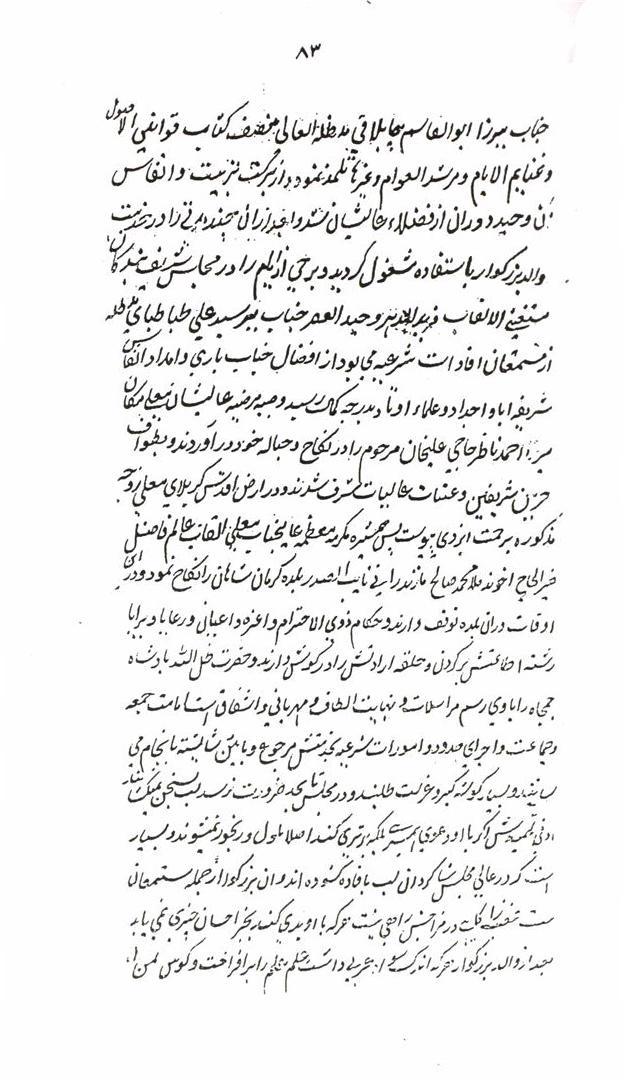 ۸۳
جناب میرزا ابوالقاسم چاپلاقی مد ظله العالی مصنف کتاب قوانین الاصول
و غنایم الایام و مرشد العوام و غیرها تلمذ نموده از برکت تربیت و انفاس
آن وحید دوران از فضلاء عالیشان شد و بعد از آن چند مدتی را در خدمت
والد بزرگوار باستفاده مشغول گردید و برخی از ایام را در مجلس شریف بندگان
مستغنی الالقاب فرید الدهر وحید العصر جناب میر سید علی طباطبای مد ظله
از مستمعان افادات شرعیه می بود از افضال جناب باری و امداد انفاس
شریفه آبا و اجداد و علماء اوتاد بدرجه کمال رسید و صبیه مرضیه عالیشان معلی مکان
میرزا احمد ناظر حاجی علیخان مرحوم را در نکاح و حباله خود در آوردند و بطواف
حرمین شریفین و عتبات عالیات مشرف شدند و در ارض اقدس کربلای معلی زوجه
مذکوره برحمت ایزدی پیوست پس همشیره مکرمه معظمه عالیجناب معلی القاب عالم فاضل
خیر الحاج آخوند ملا محمد صالح مازندرانی نایب الصدر بلده کرمان شاهان را نکاح نمود و در آن
اوقات در آن بلده توقف دارند و حکام ذوی الاحترام و اعزه و اعیان و رعایا و برایا
رشته اطاعتش بر گردن و حلقه ارادتش را در گوش دارند و حضرت ظل الله پادشاه
جمجاه را با وی رسم مراسلات و نهایت الطاف و مهربانی و اشفاق است امامت جمعه
و جماعت و اجرای حدود و امورات شرعیه بخدمتش مرجوع و بآئین شایسته بانجام می
رسانند و بسیار گوشه گیر و عزلت طلبند و در مجلس تا بحد ضرورت نرسد لب بسخن
ادنی تلمیذش اگر با او دعوی همسری بلکه برتری کند اصلا ملول و رنجور نمیشوند و بسیار
است که در عالی مجلس شاگردان لب بافاده گشوده اند و آن بزرگوار از جمله مستمعان
است در مزاجش راهی نیست هر که با او بدی کند بجز احسان چیزی نمی یابد
بعد از والد بزرگوار هر که اندک داشت علم را برافراخت و کوس لمن